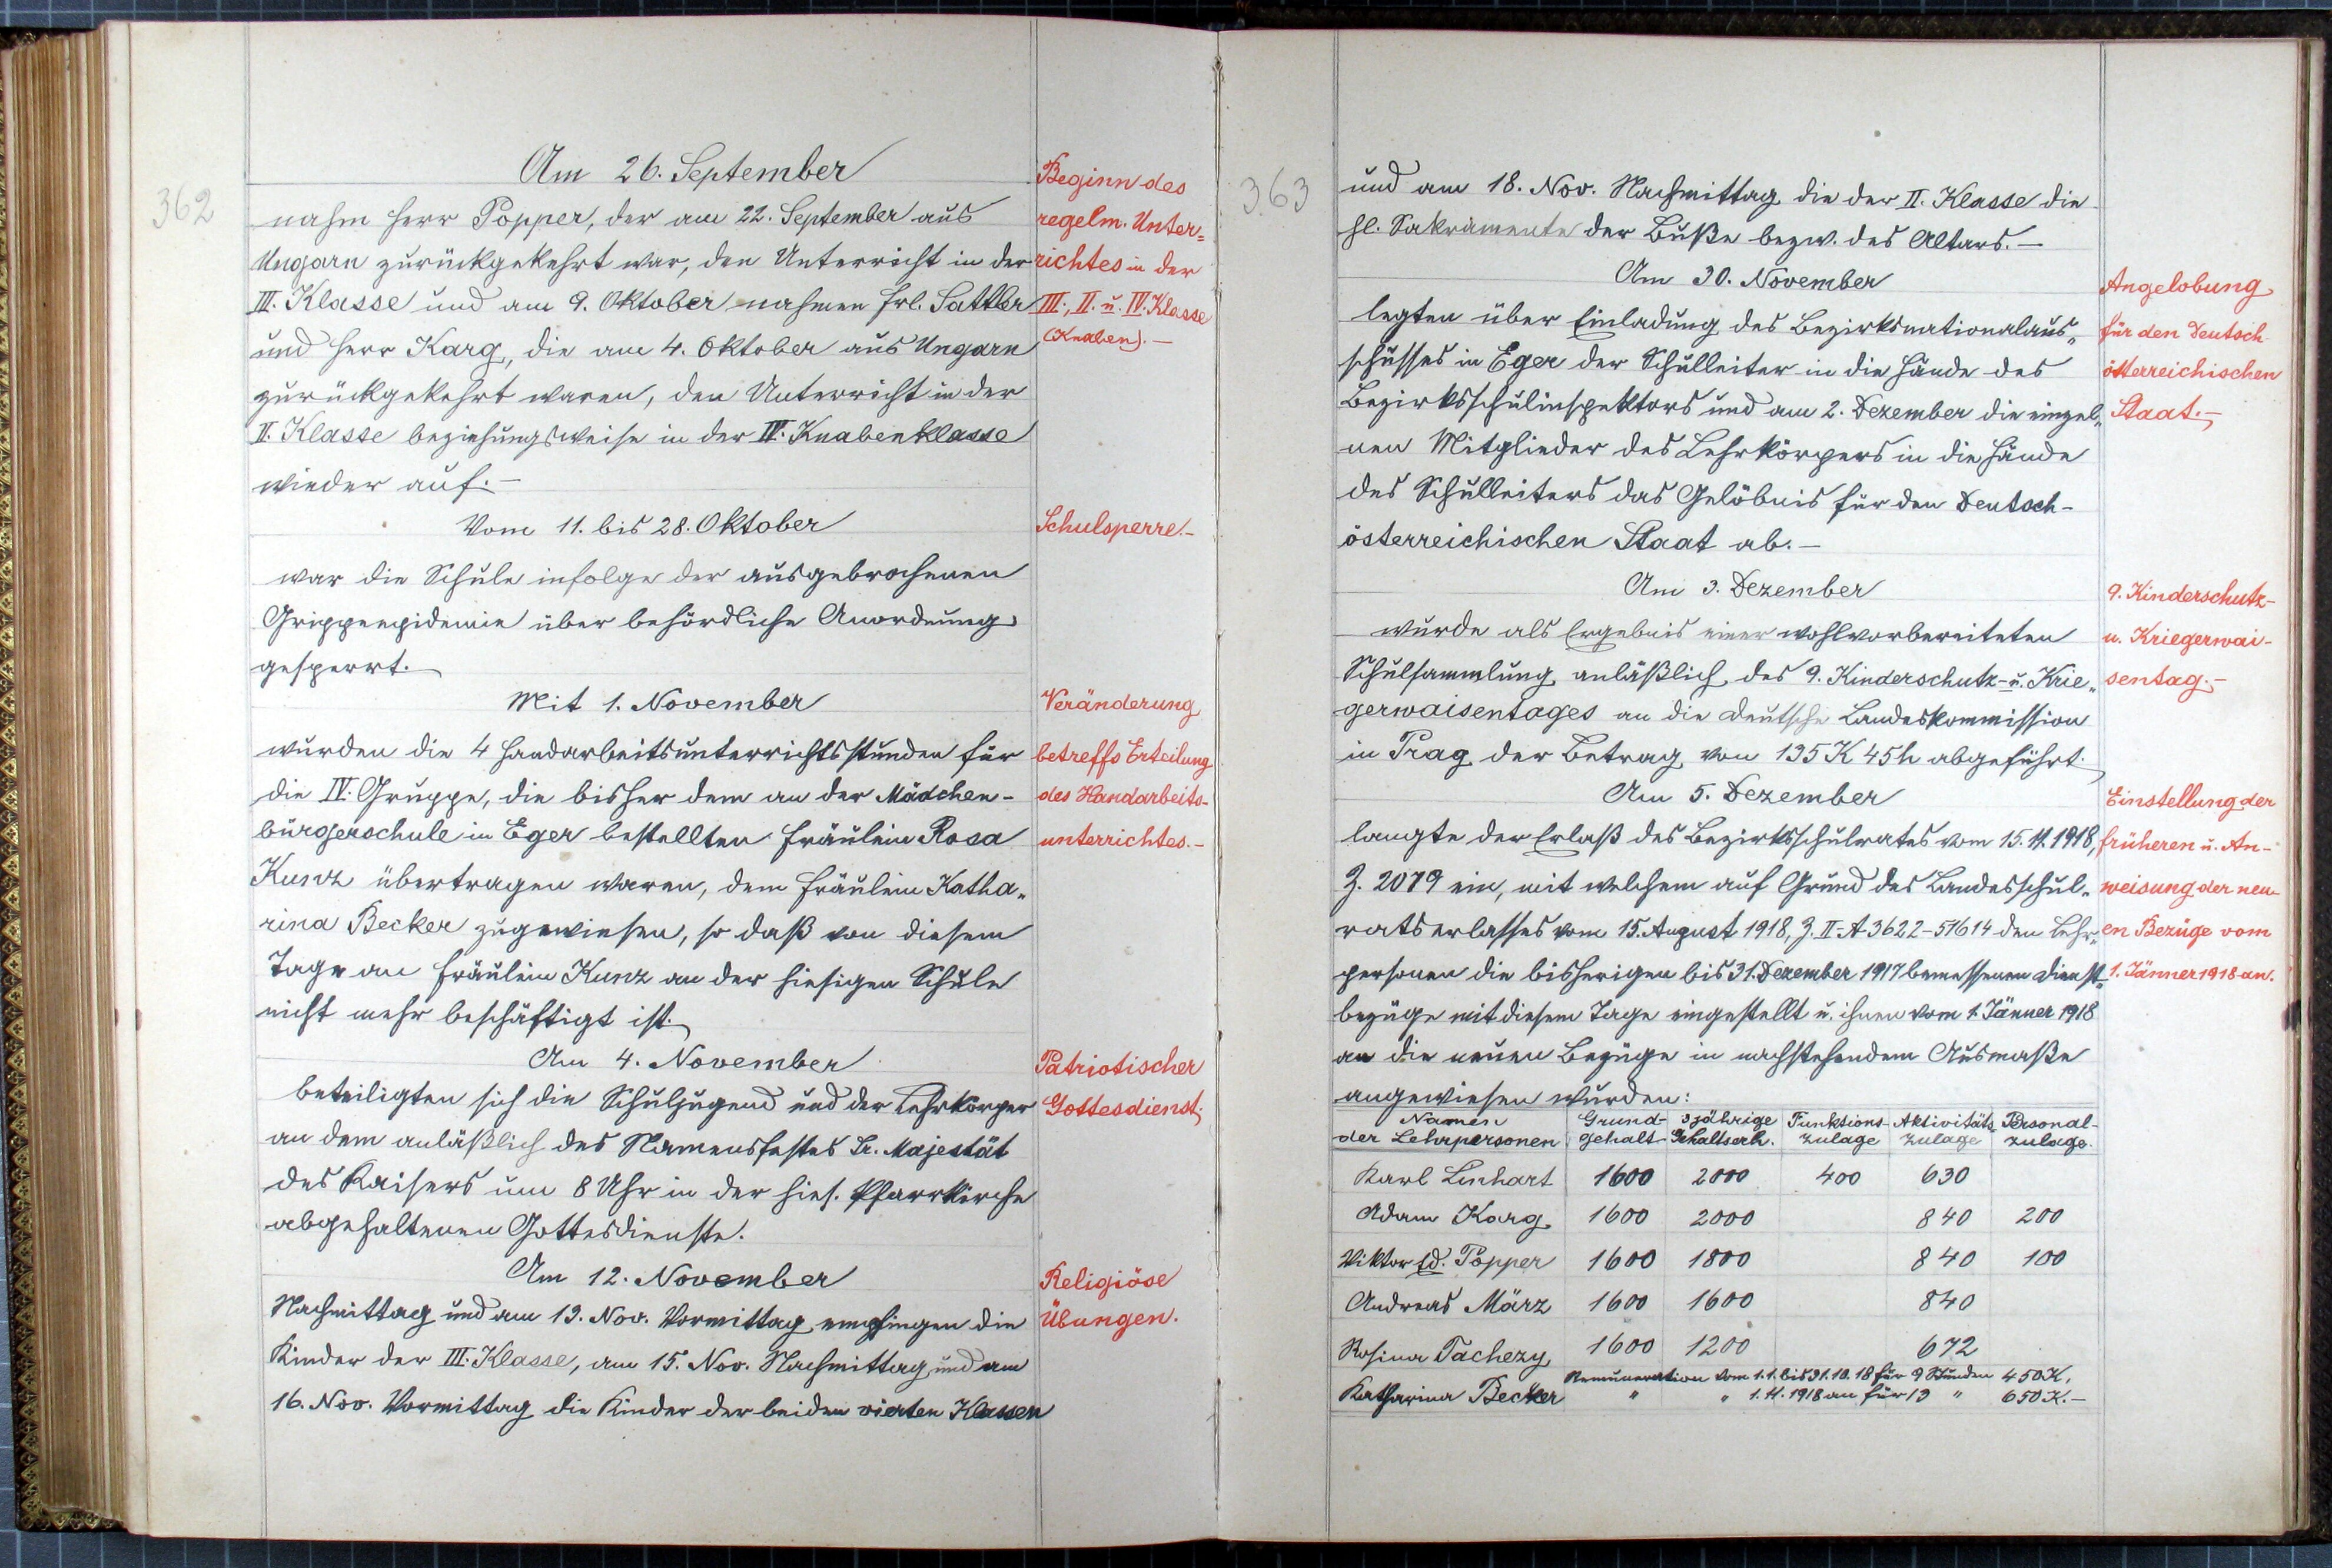 362
Am 26. September
nahm Herr Popper, der am 22. September aus
Ungarn zurückgekehrt war, den Unterricht in der
III. Klasse und am 9. Oktober nahmen Frl. Sattler
und Herr Karg, die am 4. Oktober aus Ungarn
zurückgekehrt waren, den Unterricht in der
II. Klasse beziehungsweise in der IV. Knabenklasse
wieder auf.-
Vom 11. bis 28. Oktober
war die Schule infolge der ausgebrochenen
Grippeepidemie über behördliche Anordnung
gesperrt.
Mit 1. November
wurden die 4 Handarbeitsunterrichtsstunden für
die IV. Gruppe, die bisher dem an der Mädchen-
bürgerschule in Eger bestellten Fräulein Rosa
Kunz übertragen waren, dem Fräulein Katha„
rina Becker zugewiesen, so daß von diesem
Tage an Fräulein Kunz an der hiesigen Schule
nicht mehr beschäftigt ist.
Am 4. November
beteiligten sich die Schuljugend und der Lehrkörper
an dem anläßlich des Namensfestes Sr. Majestät
des Kaisers um 8 Uhr in der hies. Pfarrkirche
abgehaltenen Gottesdienste.
Am 12. November
Nachmittag und am 13. Nov. Vormittag empfingen die
Kinder der III. Klasse, am 15. Nov. Nachmittag und am
16. Nov. Vormittag die Kinder der beiden vierten Klassen
Beginn des
regelm. Unter=
richtes in der
III., II. u. IV. Klasse
(Knaben).-
Schulsperre.-
Veränderung
betreffs Erteilung
des Handarbeits-
unterrichtes.-
Patriotischer
Gottesdienst.
Religiöse
Übungen.
363
und am 18. Nov. Nachmittag die der II. Klasse die
hl. Sakramente der Buße bezw. des Altars.-
Am 30. November
legten über Einladung des Bezirksnationalaus„
schusses in Eger der Schulleiter in die Hände des
Bezirksschulinspektors und am 2. Dezember die einzel„
nen Mitglieder des Lehrkörpers in die Hände
des Schulleiters das Gelöbnis für den Deutsch-
österreichischen Staat ab.-
Am 3. Dezember
wurde als Ergebnis einer wohlvorbereiteten
Schulsammlung anläßlich des 9. Kinderschutz- u. Krie„
gerwaisentages an die deutsche Landeskommission
in Prag der Betrag von 135 K 45 h abgeführt.
Am 5. Dezember
langte der Erlaß des Bezirksschulrates vom 15. 11. 1918,
Z. 2079 ein, mit welchem auf Grund des Landesschul„
ratserlasses vom 15. August 1918, Z. II-A 3622-51614 den Lehr„
personen die bisherigen bis 31. Dezember 1917 bemessenen Dienst„
bezüge mit diesem Tage eingestellt u. ihnen vom 1. Jänner 1918
an die neuen Bezüge in nachstehendem Ausmaße
angewiesen wurden:
Namen Grund- 3jährige Funktions- Aktivitäts- Personal-
der Lehrpersonen gehalt Gehaltserh. zulage zulage zulage.
Karl Linhart 1600 2000 400 630
Adam Karg 1600 2000 840 200
Viktor Ed. Popper 1600 1800 840 100
Andreas März 1600 1600 840
Rosina Tachezy 1600 1200 672
Remuneration vom 1.1. bis 31.10.18 für 9 Stunden 450 K,
Katharina Becker " " 1. 11. 1918 an für 13 " 650 K.-
Angelobung
für den Deutsch-
österreichischen
Staat.-
9. Kinderschutz-
u. Kriegerwai-
sentag.-
Einstellung der
früheren u. An-
weisung der neu-
en Bezüge vom
1. Jänner 1918 an.